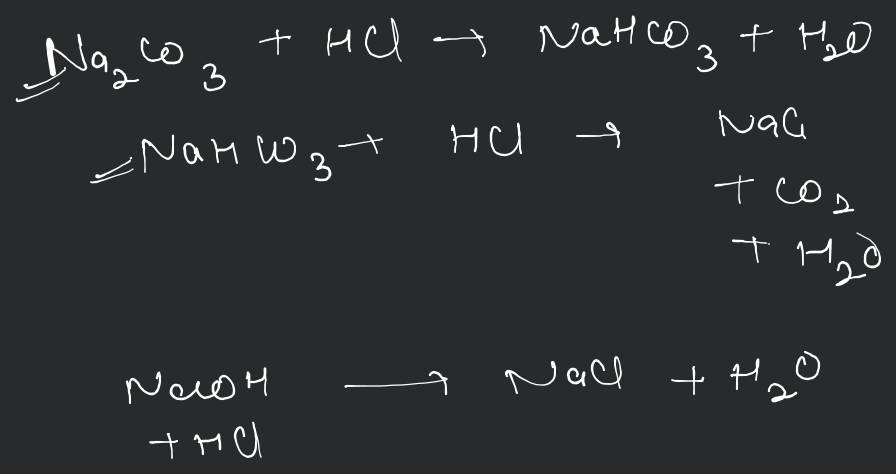 Na₂CO₃ + HCl → NaHCO₃ + H₂O
NaHCO₃ + HCl → NaCl
+ CO₂
+ H₂O
NaOH → NaCl + H₂O
+ HCl